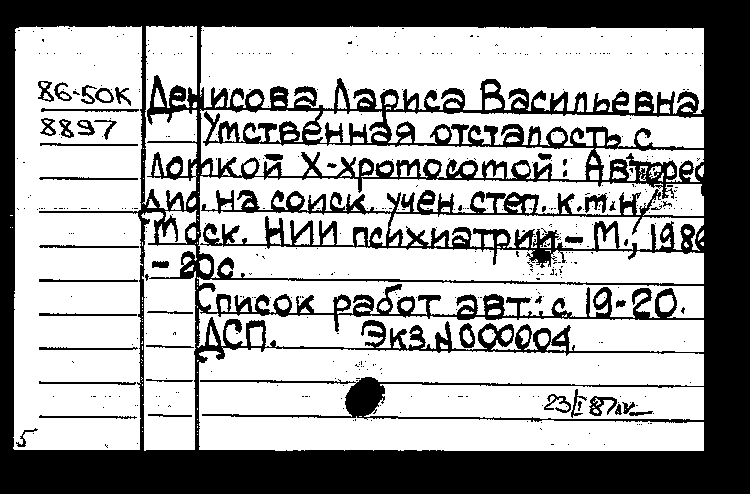 86-50к Денисова, Лариса Васильевна.
8897 Умственная отсталость с
ломкой X-хромосомой: Авторес
дис. на соиск. учен. степ. к.м.н. /
Моск. НИИ психиатрии. – М., 1986
– 20с.
Список работ авт.: с. 19-20.
ДСП. Экз. N 000004.
23/I 87
5